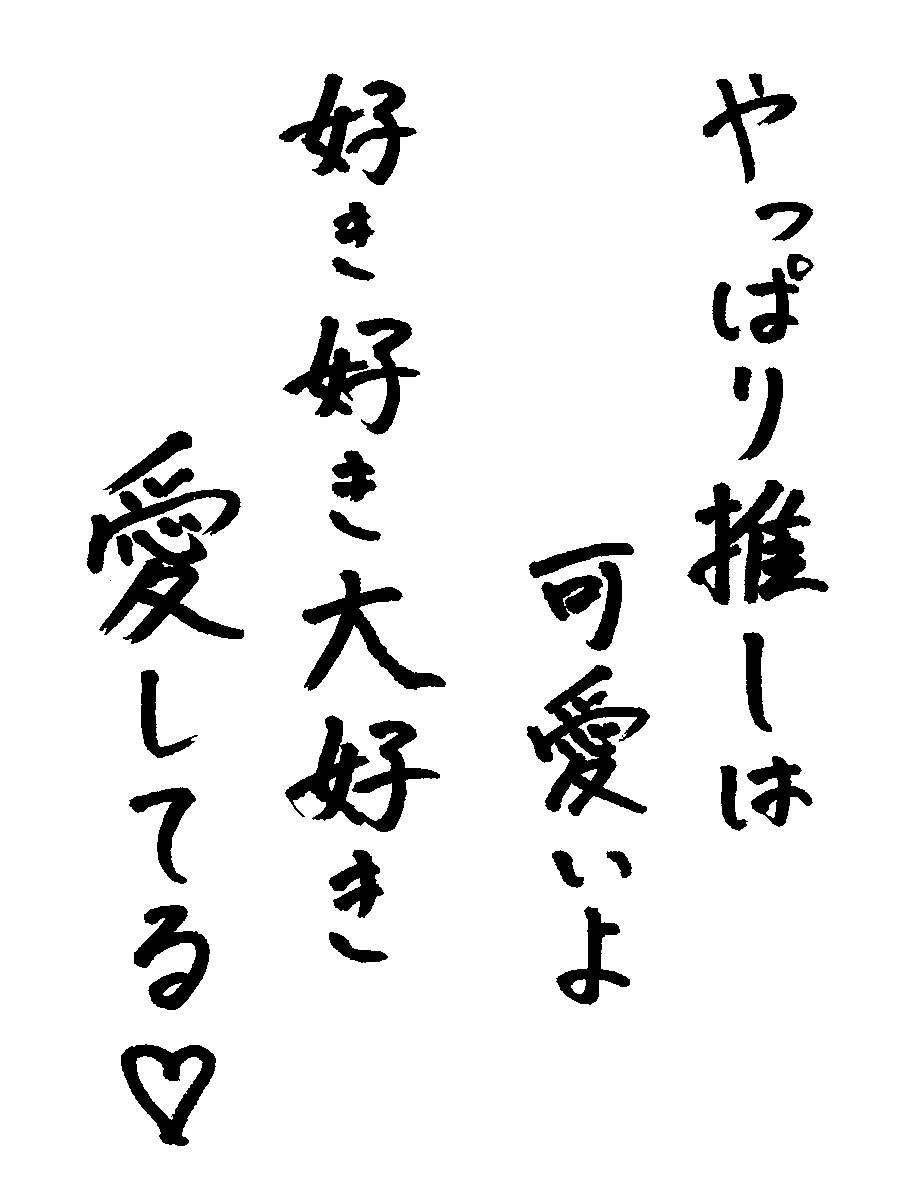 やっぱり推しは
可愛いよ
好き好き大好き
愛してる♡